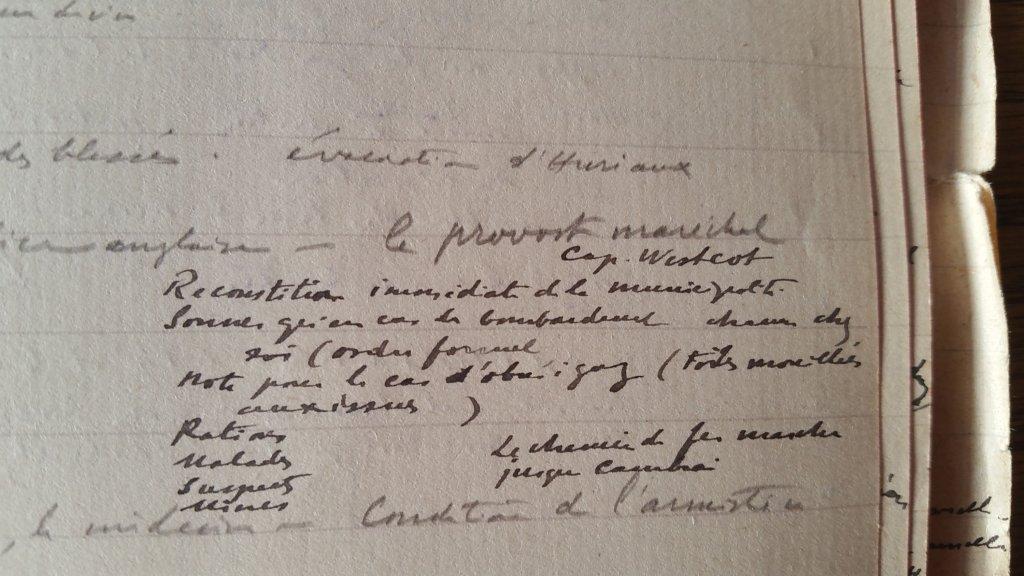 des blessés. évacuation d'Huriaux
anglaise — le provost maréchal
Cap. Westcot
Reconstitution immédiate de la municipalité
qu'en cas de bombardement chacun chez
soi (ordre formel
Note pour le cas d'obus à gaz (toiles mouillées
aux issues )
Rations
Malades
Suspects
Mines
Le chemin de fer marche
jusque Cambrai
, le médecin — Condition de l'armistice